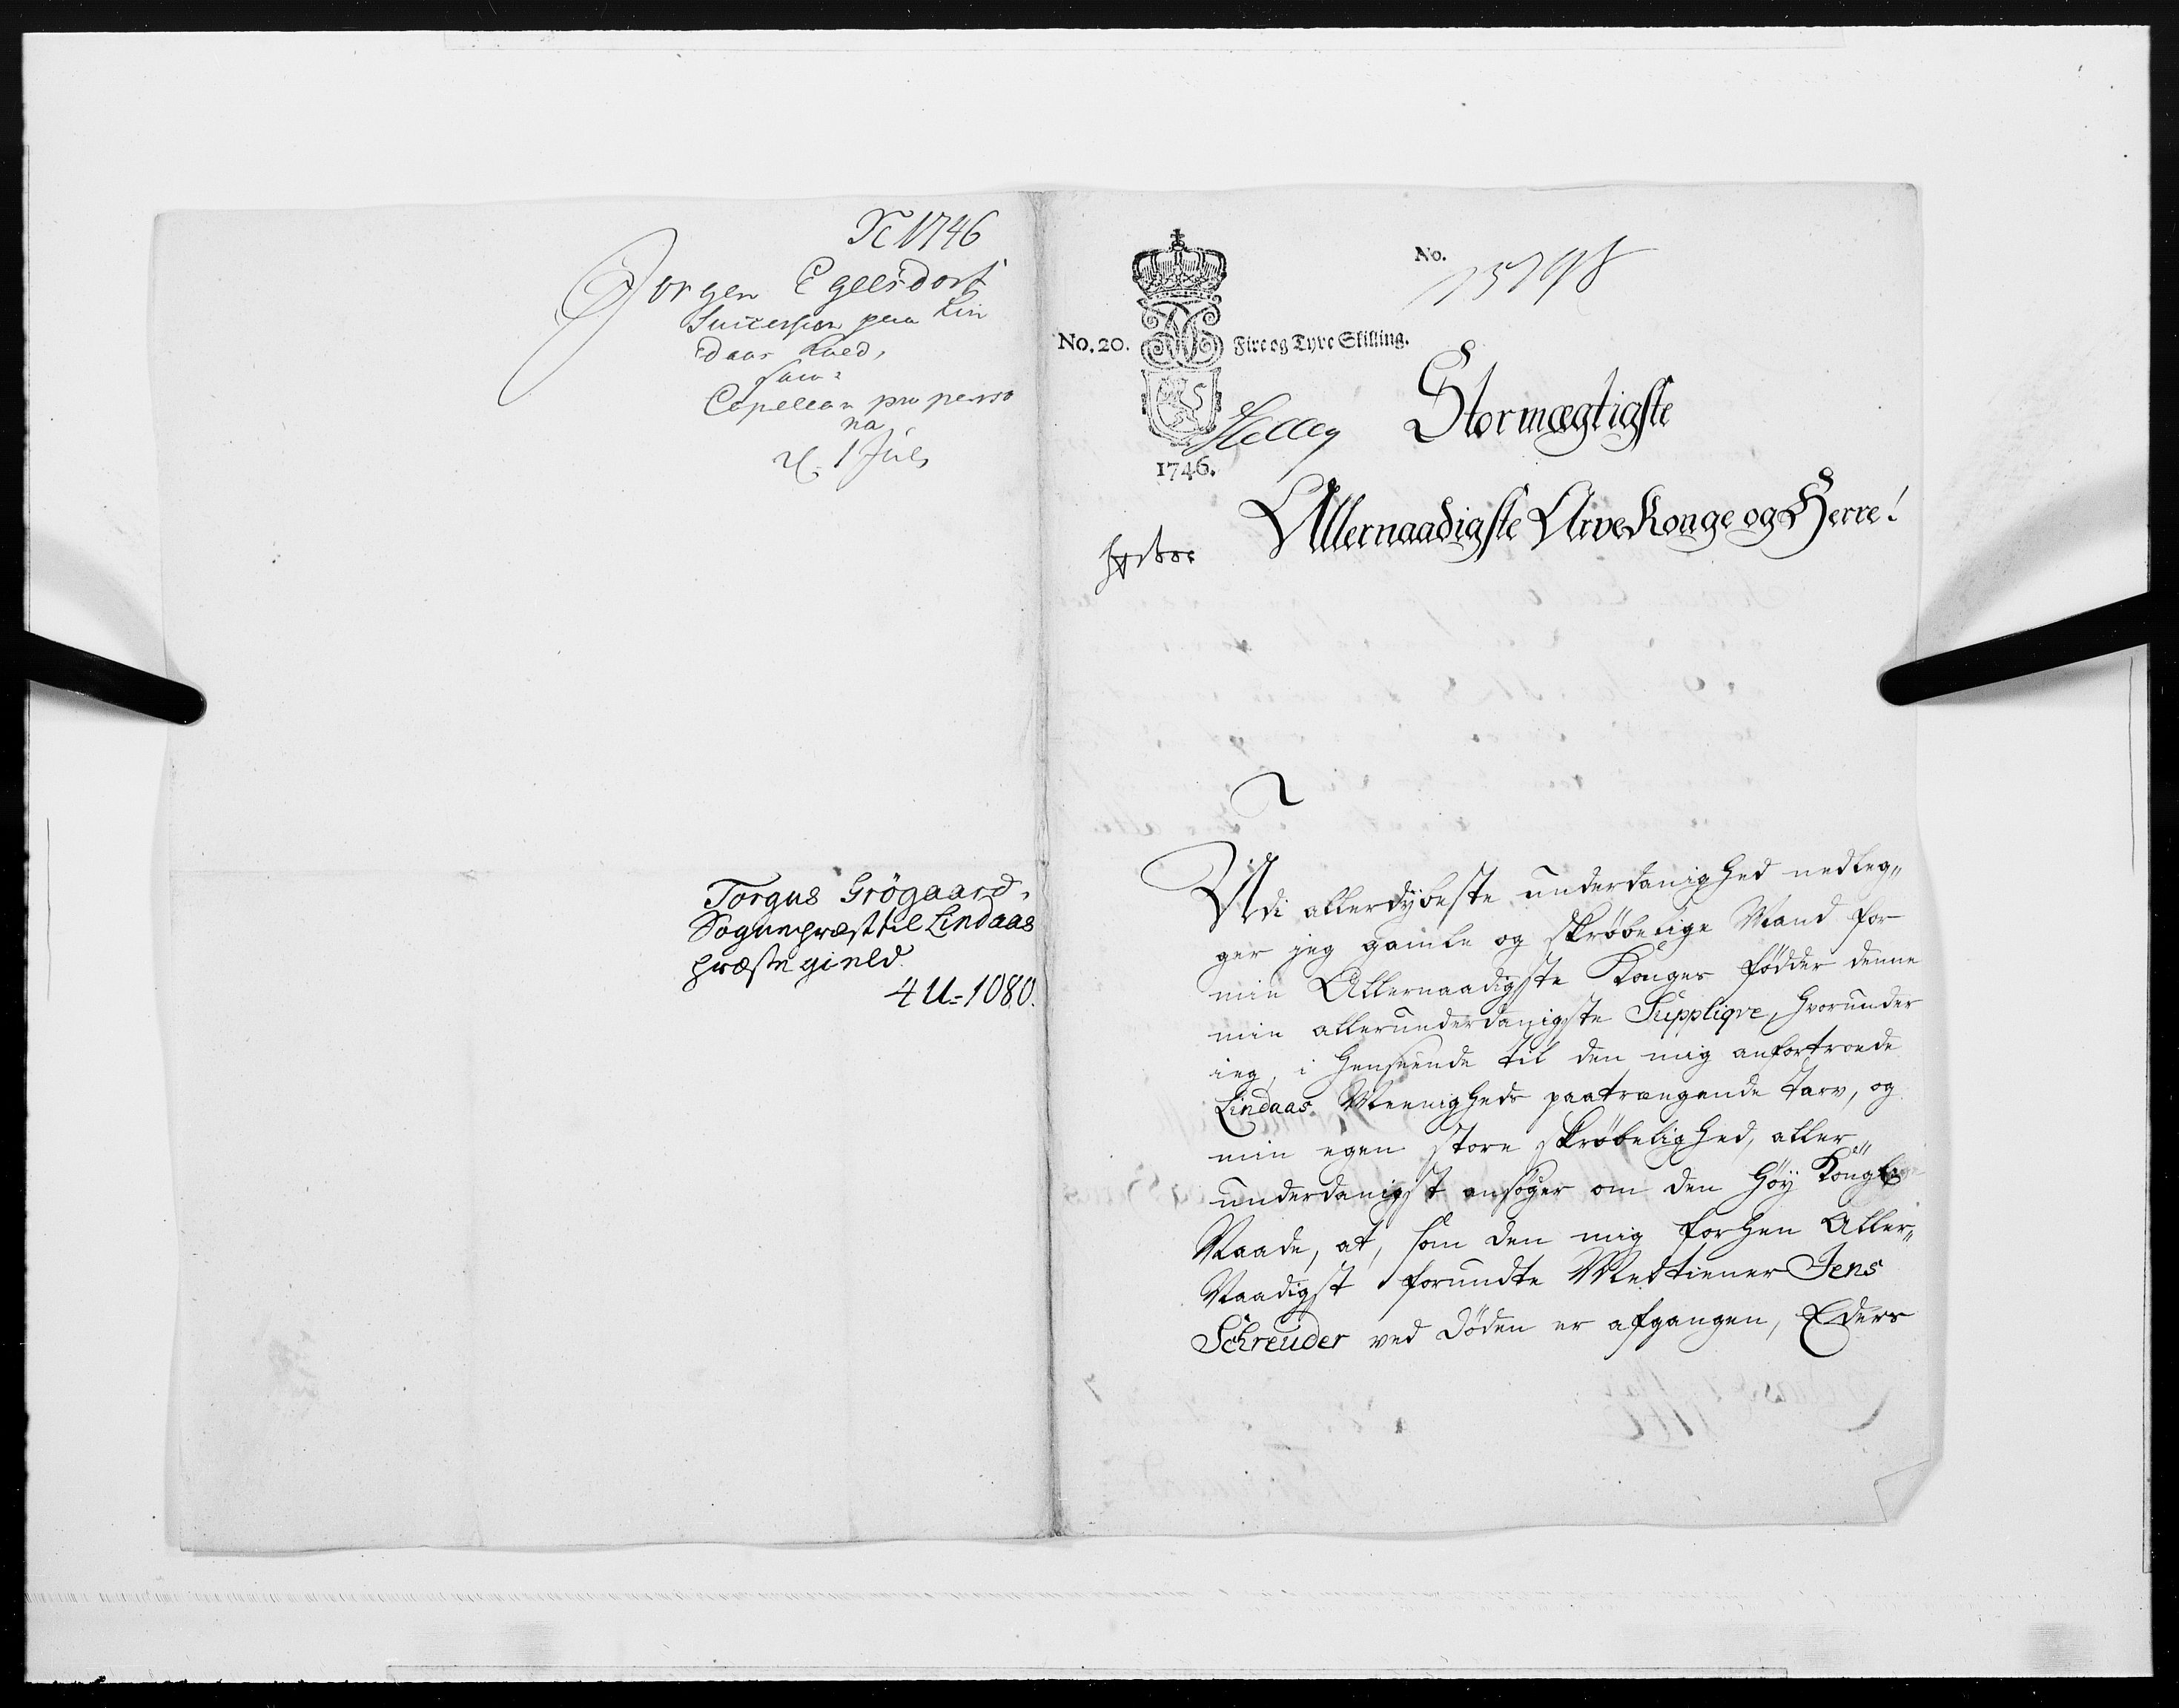 1746
Jørgen Egelsdorf
Succession paa Lin
daas Kald,
Capellan pro perso
na
d. 1 Jul
Torgus Grögaard,
Sognepræst til Lindaas
præstegield.
4 U=1080.
No.
15798
No. 20.
Fire og Tyve Skilling.
1746.
Stormægtigste
Allernaadigste Arve Konge og Herre!
Udi allerdybeste underdanighed nedleg„
ger jeg gamle og skrøbelige Mand for
min Allernaadigste Konges fødder denne
min allerunderdanigste Suppliqve, hvorunder
ieg, i henseende til den mig anfortroede
Lindaas Meenigheds paatrængende Tarv, og
min egen store skrøbelighed, aller„
underdanigst ansøger om den høy Kongl.
Naade, at, som den mig forhen Aller„
Naadigst forundte Medtiener Jens
Schreuder ved Døden er afgangen, Eders